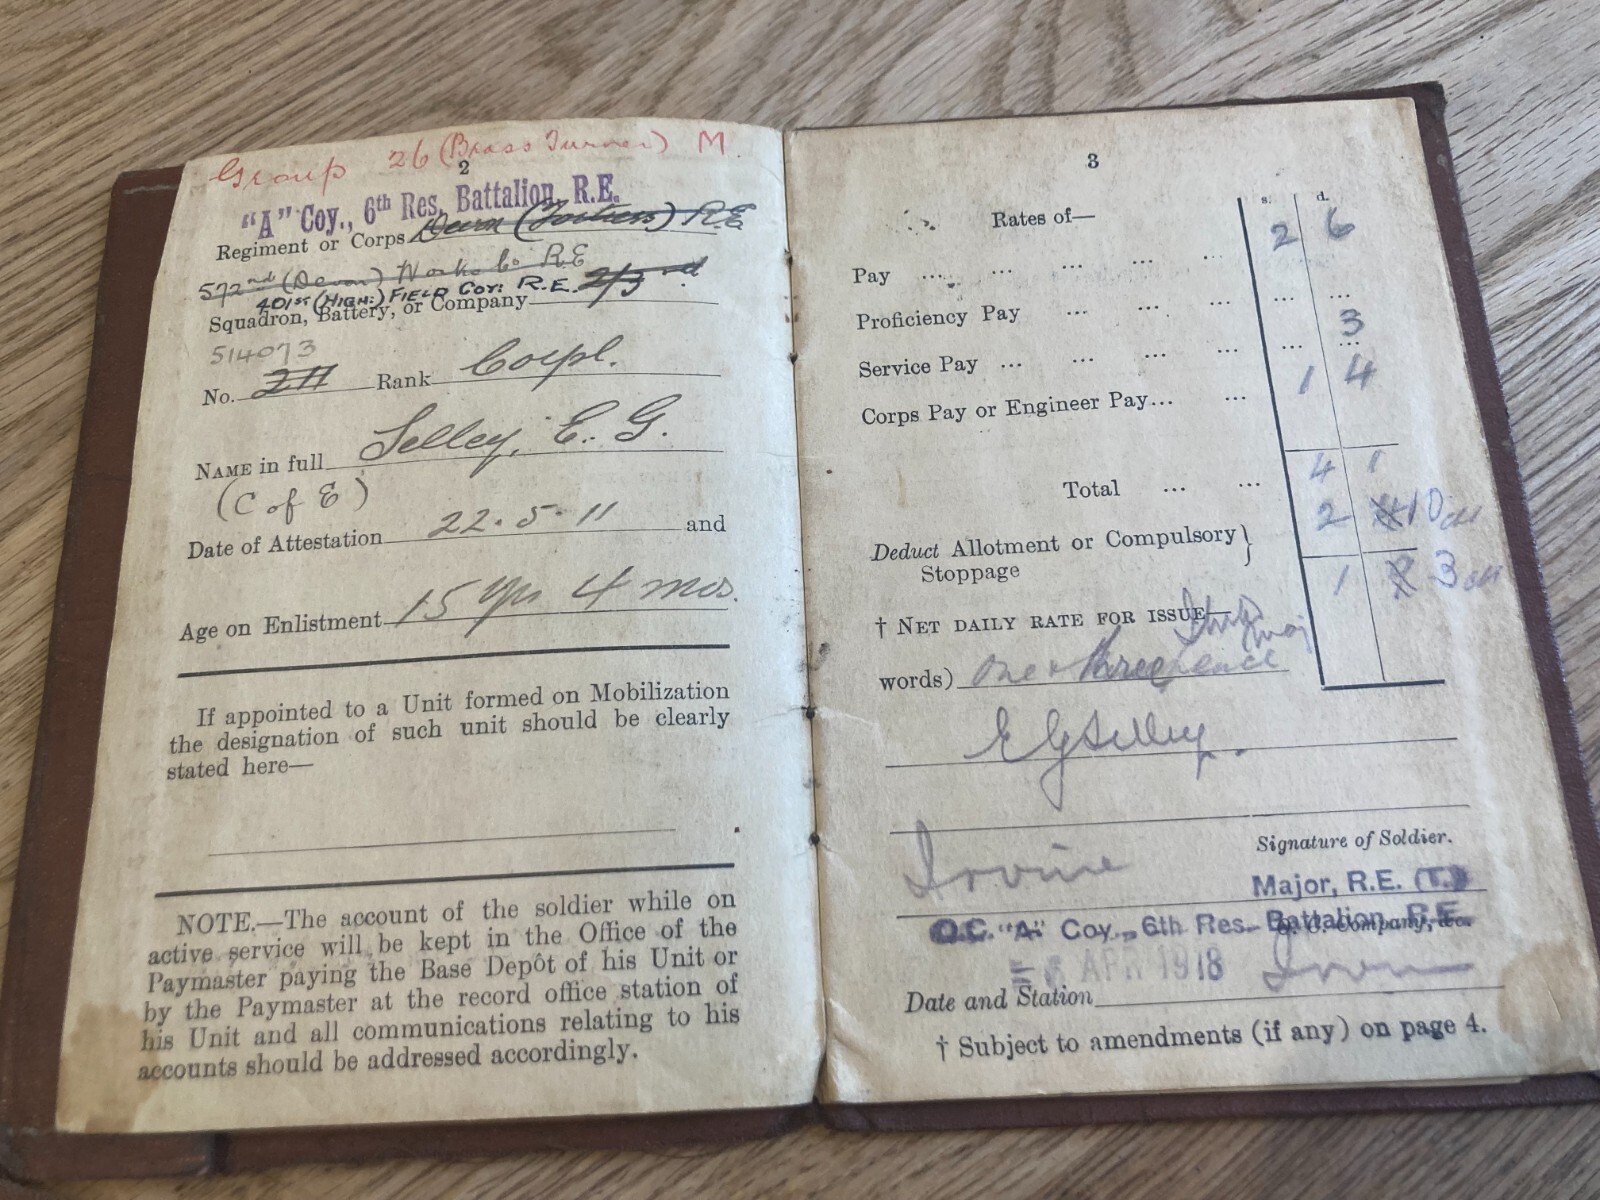 Group 26 (Brass Turner) M.
2
"A" Coy., 6th Res. Battalion, R.E.
Regiment or Corps Devon (Fortress) R.E
572nd (Devon) Works Co R.E
401ST (HIGH:) FIELD COY: R.E. 2/3rd
Squadron, Battery, or Company
514073
No. 211 Rank Corpl.
NAME in full Selley, E. G.
(C of E)
Date of Attestation 22.5.11 and
Age on Enlistment 15 yrs 4 mos.
If appointed to a Unit formed on Mobilization
the designation of such unit should be clearly
stated here—
NOTE.—The account of the soldier while on
active service will be kept in the Office of the
Paymaster paying the Base Depôt of his Unit or
by the Paymaster at the record office station of
his Unit and all communications relating to his
accounts should be addressed accordingly.
3
Rates of— s. d.
Pay ... ... ... ... 2 6
Proficiency Pay ... ... ... ... ... 3
Service Pay ... ... ... ... ... ...
Corps Pay or Engineer Pay... ... 1 4
Total ... ... 4 1
Deduct Allotment or Compulsory } 2 10
Stoppage
† NET DAILY RATE FOR ISSUE— 1 3
words) One & threepence
E G Selley.
Signature of Soldier.
Irvine
Major, R.E. (T.)
O.C. "A" Coy., 6th Res. Battalion, R.E.
O. C. Company, &c.
APR 1918 Irvine
Date and Station
† Subject to amendments (if any) on page 4.